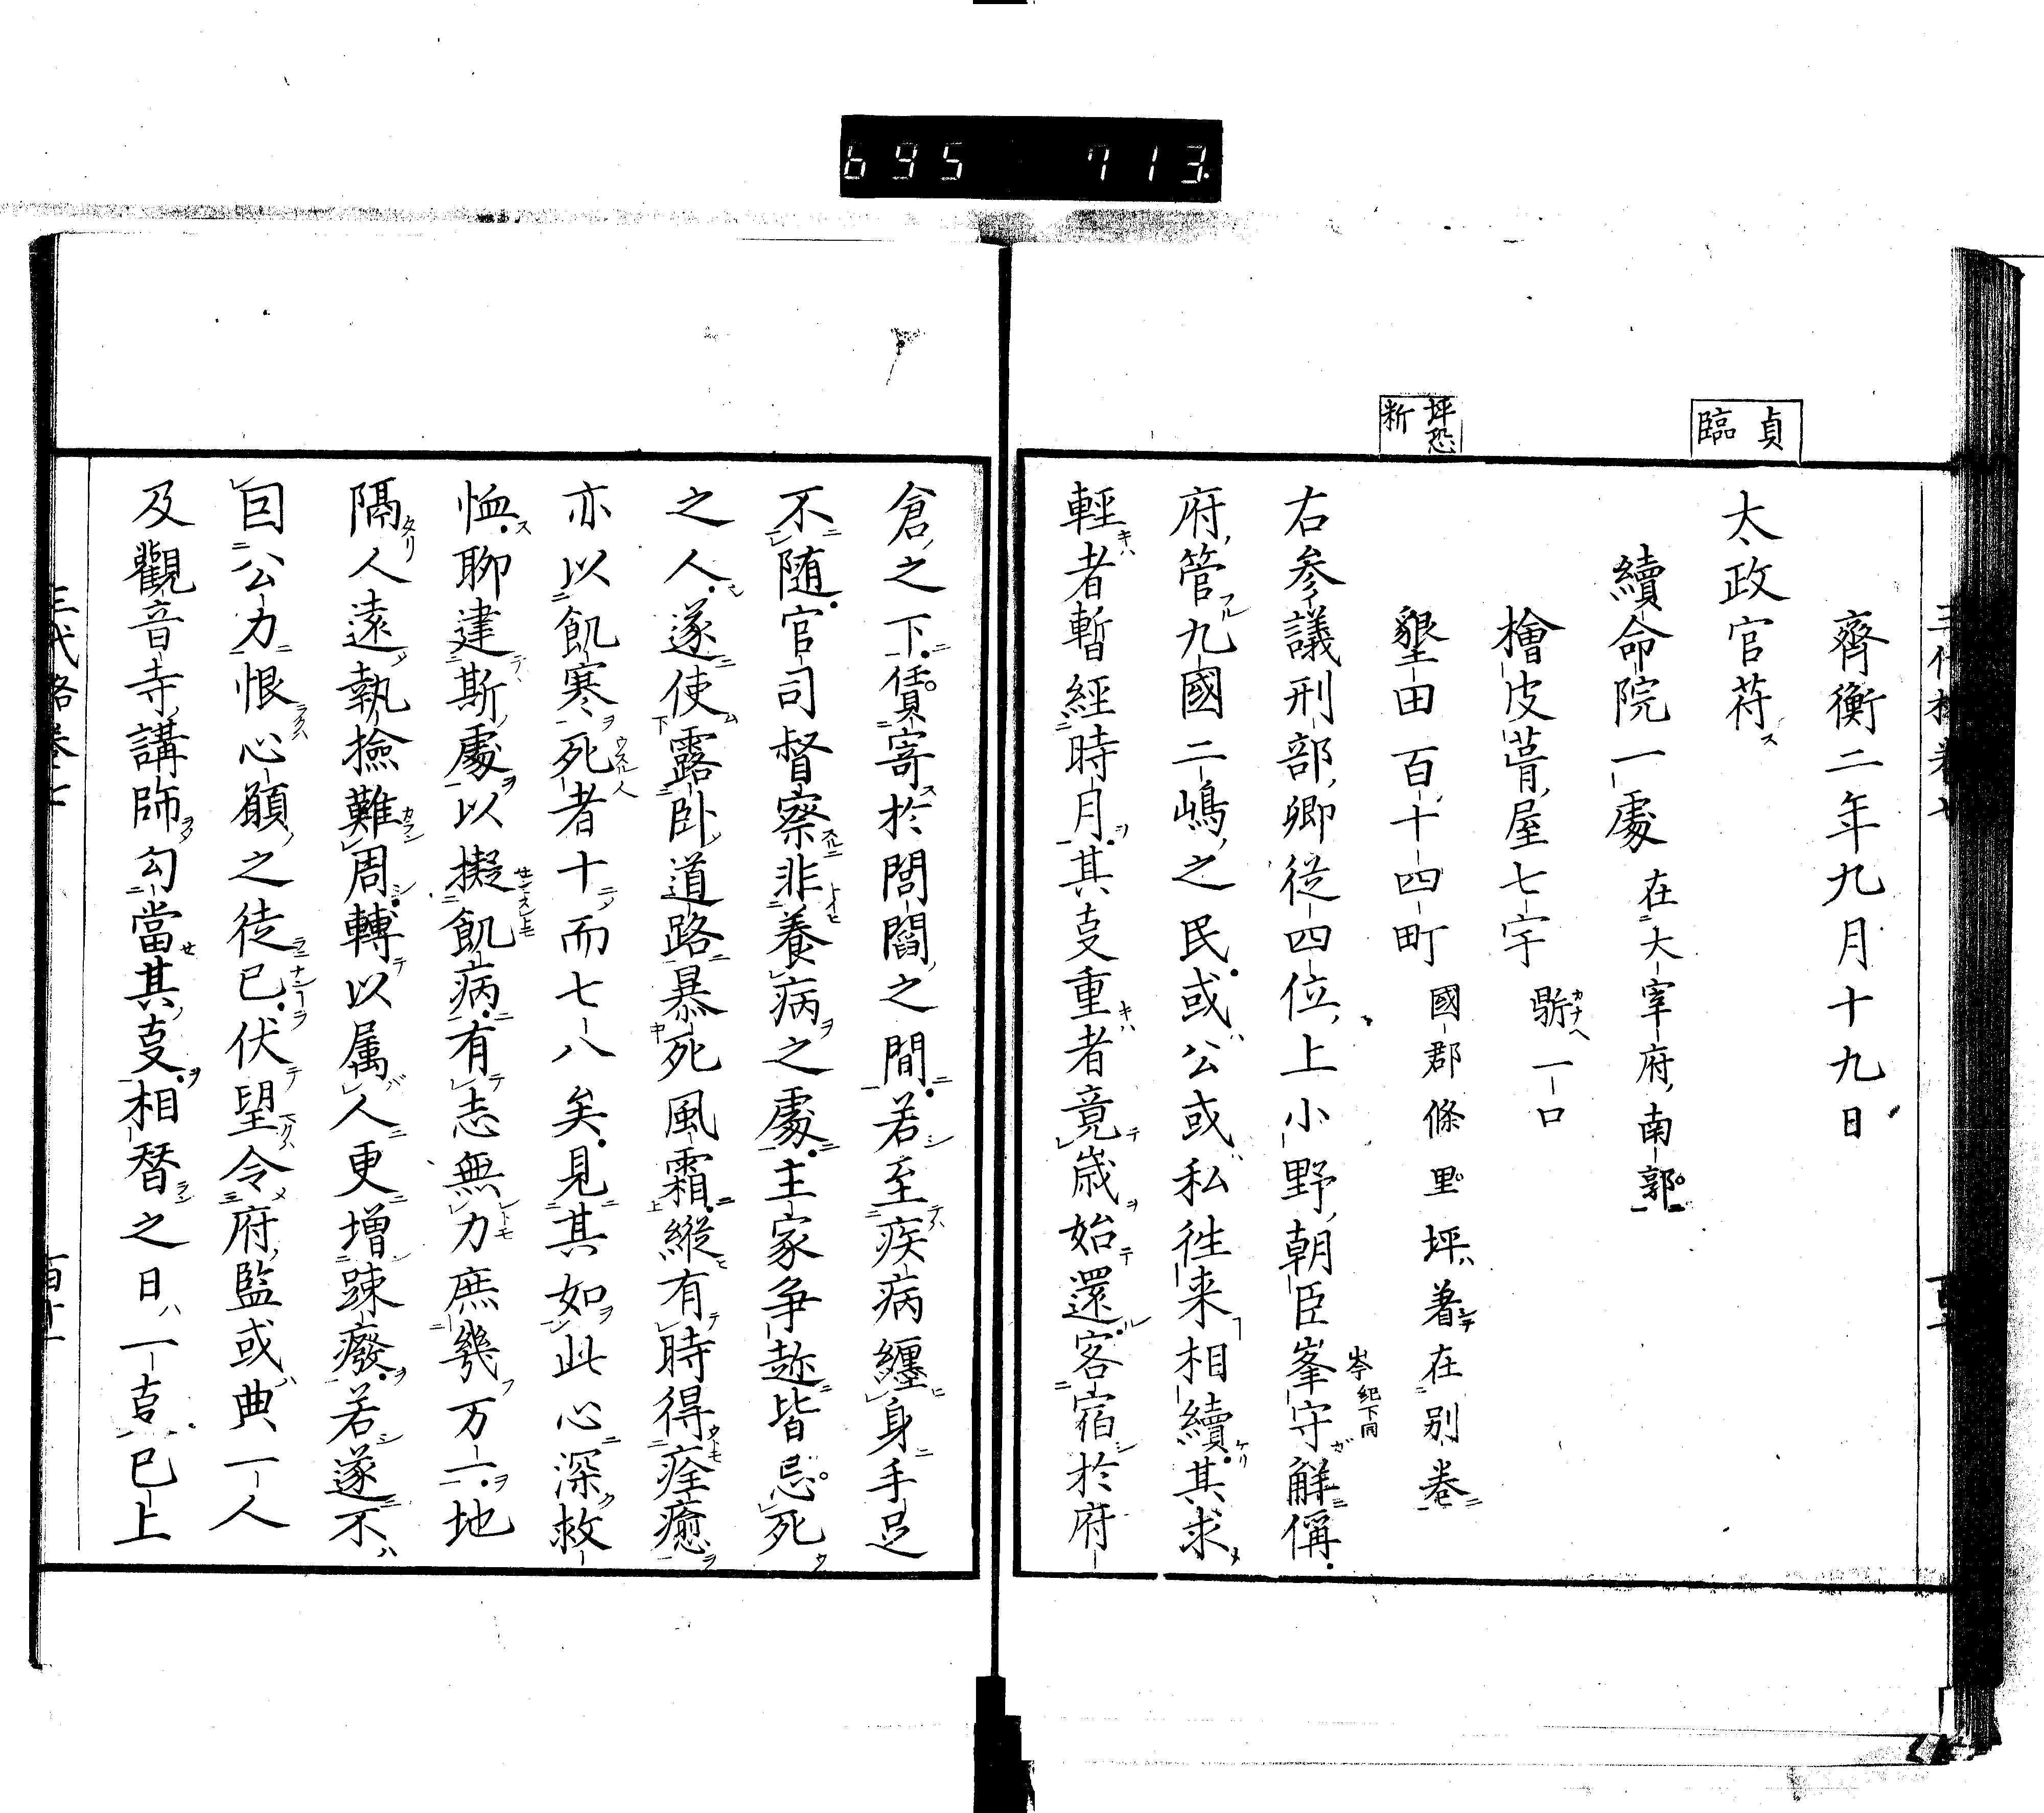 695 713
貞臨
坪恐
断
齊衡二年九月十九日
太政官苻ス
續命院一處 在大宰府南郭
檜皮葺屋七宇 鼑一口
墾田百十四町 國郡條里坪着在別巻
右参議刑部卿從四位上小野朝臣峯守解偁
岑紀下同
府管九國二嶋之民或公或私徃来相續其求
輕者暫經時月其㕝重者竟歳始還客宿於府
倉之下賃寄於閭閻之間若至疾病纏身手足
不随官司督察非養病之處主家争趂皆忌死
之人遂使露卧道路暴死風霜縦有時得痊癒
亦以飢寒死者十而七八矣見其如此心深救
恤聊建斯處以擬飢病有志無力庶幾万一地
隔人遠執撿難周轉以属人更増踈癈若遂不
囙公力恨心願之徒已伏望令府監或典一人
及觀音寺講師勾當其㕝相替之日一㕝已上